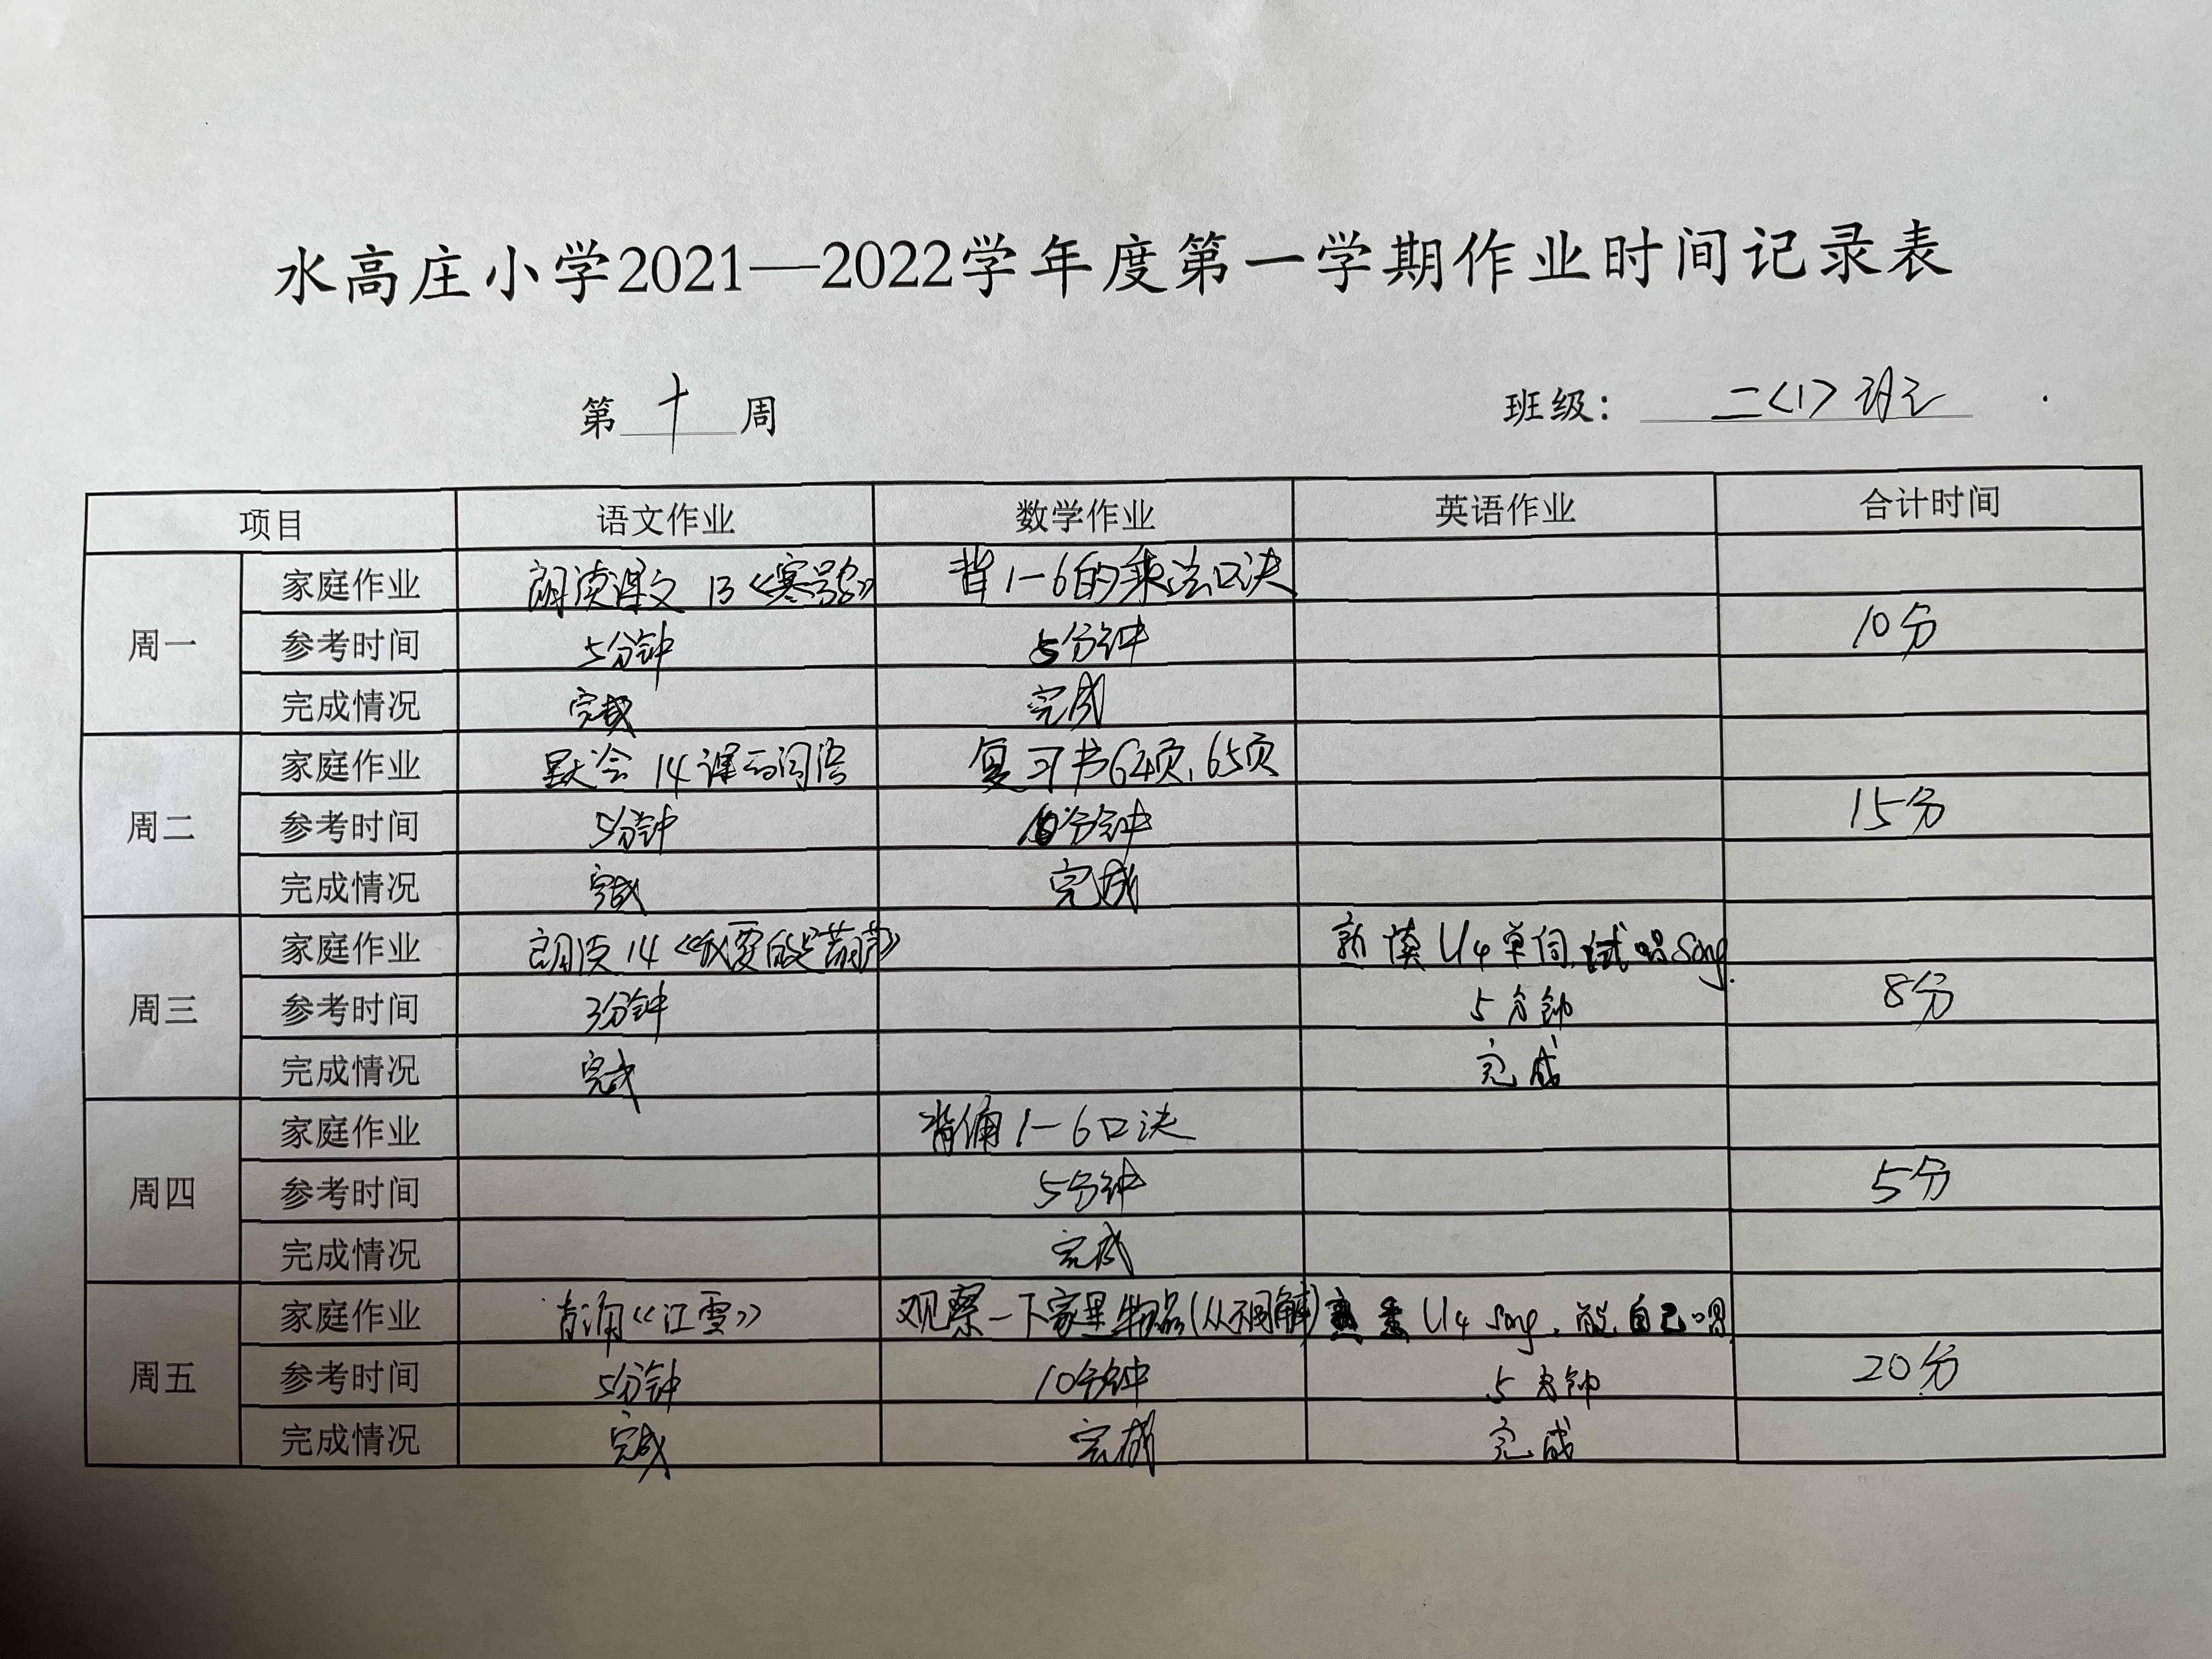 水高庄小学2021—2022学年度第一学期作业时间记录表
第十周 班级：二<1>班
项目 语文作业 数学作业 英语作业 合计时间
周一
家庭作业 朗读课文 13《寒号鸟》 背1-6的乘法口决
参考时间 5分钟 5分钟 10分
完成情况 完成 完成
周二
家庭作业 默会14课的词语 复习书64页,65页
参考时间 5分钟 10分钟 15分
完成情况 完成 完成
周三
家庭作业 朗读14《我要的是葫芦》 U4单词,试唱song.
参考时间 3分钟 5分钟 8分
完成情况 完成 完成
周四
家庭作业 背诵1-6口决
参考时间 5分钟 5分
完成情况 完成
周五
家庭作业 背诵《江雪》 观察一下家里物品(从不同) 熟悉U4 song,能自己唱
参考时间 5分钟 10分钟 5分钟 20分
完成情况 完成 完成 完成